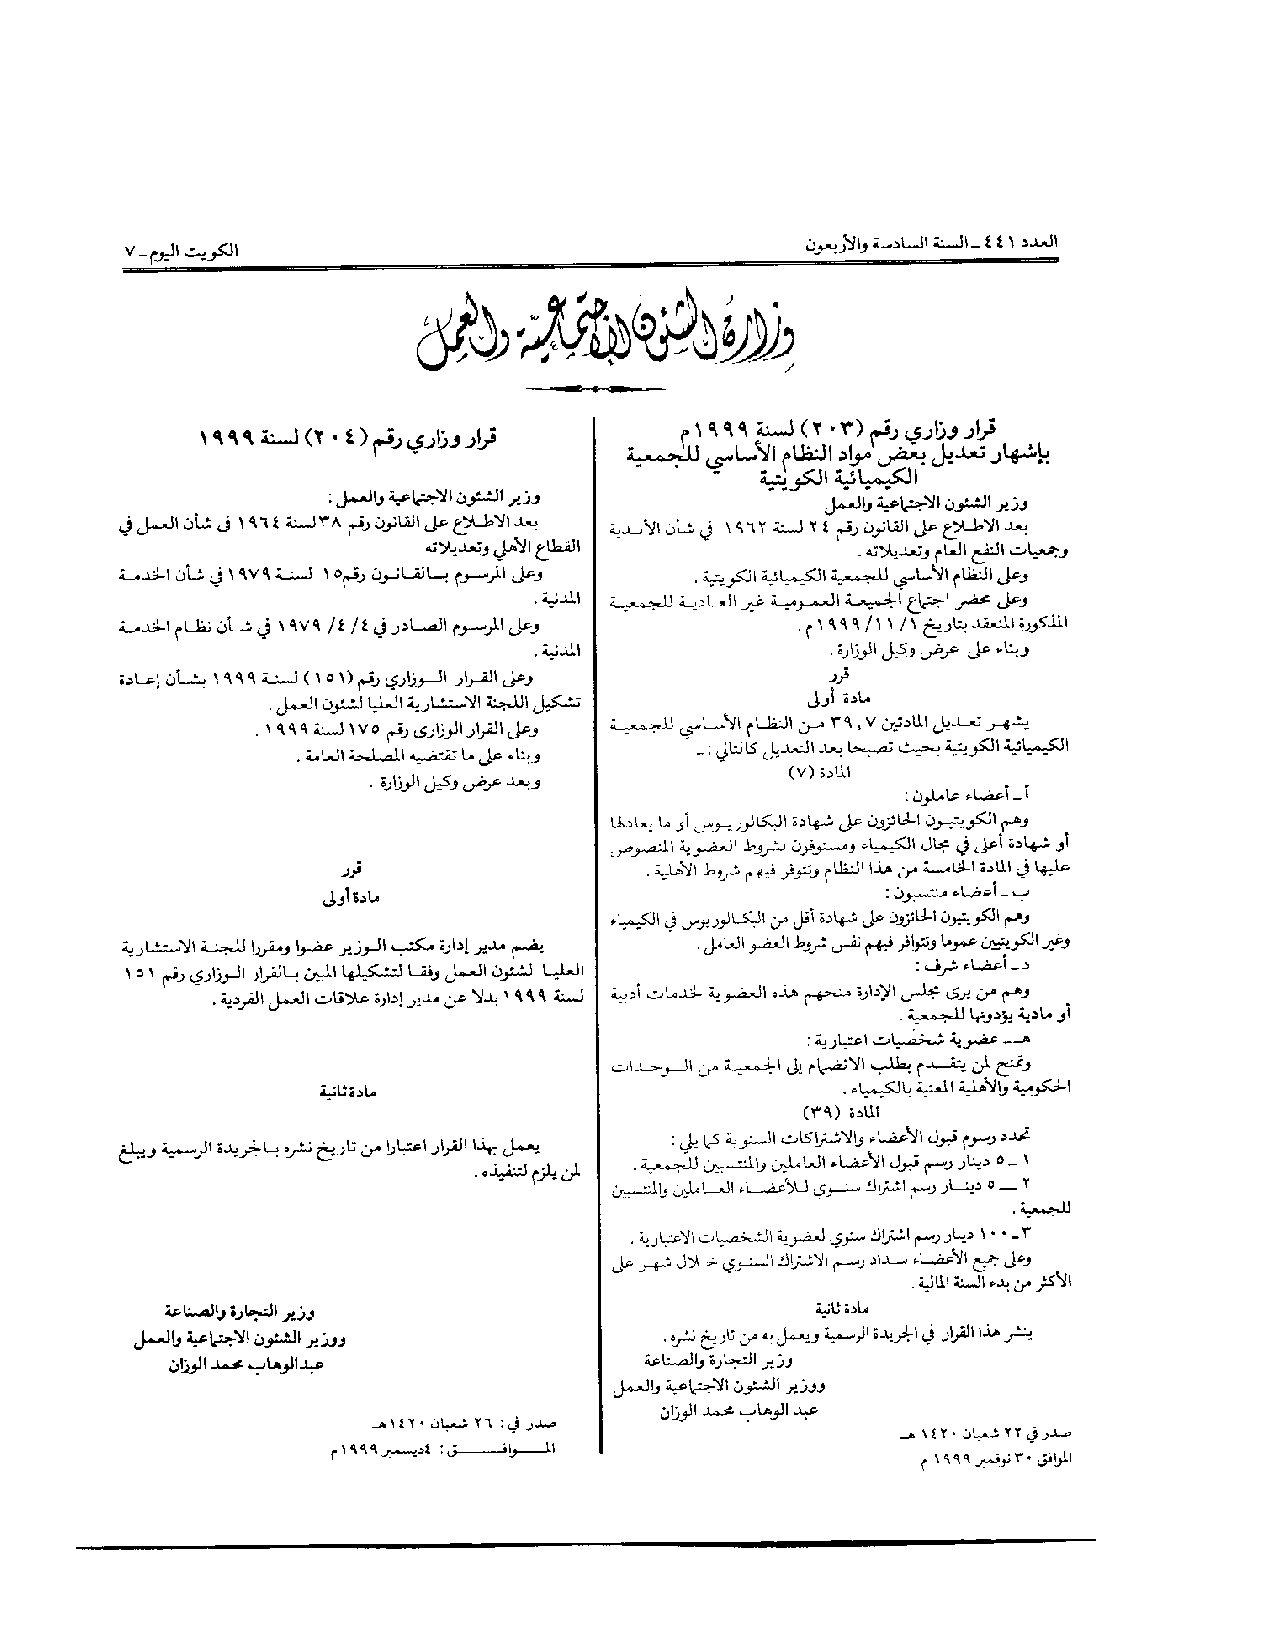 العدد ٤٤١ - السنة السادسة والأربعون
الكويت اليوم - ٧
وزارة الشئون الاجتماعية والعمل
قرار وزاري رقم (٢٠٣) لسنة ١٩٩٩م
بإشهار تعديل بعض مواد النظام الأساسي للجمعية
الكيميائية الكويتية
وزير الشئون الاجتماعية والعمل
بعد الاطلاع على القانون رقم ٢٤ لسنة ١٩٦٢ في شأن الأندية
وجمعيات النفع العام وتعديلاته .
وعلى النظام الأساسي للجمعية الكيميائية الكويتية .
وعلى محضر اجتماع الجمعية العمومية غير العادية للجمعية
المذكورة المنعقد بتاريخ ١/ ١١/ ١٩٩٩م .
وبناء على عرض وكيل الوزارة .
قرر
مادة أولى
يشهر تعديل المادتين ٧ , ٣٩ من النظام الأساسي للجمعية
الكيميائية الكويتية بحيث تصبحا بعد التعديل كالتالي : -
المادة (٧)
أ - أعضاء عاملون :
وهم الكويتيون الحائزون على شهادة البكالوريوس أو ما يعادلها
أو شهادة أعلى في مجال الكيمياء ومستوفون بشروط العضوية المنصوص
عليها في المادة الخامسة من هذا النظام وتتوفر فيهم شروط الأهلية .
ب - أعضاء منتسبون :
وهم الكويتيون الحائزون على شهادة أقل من البكالوريوس في الكيمياء
وغير الكويتيين عموما وتتوافر فيهم نفس شروط العضو العامل .
د - أعضاء شرف :
وهم من يرى مجلس الإدارة منحهم هذه العضوية لخدمات أدبية
أو مادية يؤدونها للجمعية .
هـ - عضوية شخصيات اعتبارية :
وتمنح لمن يتقدم بطلب الانضمام إلى الجمعية من الوحدات
الحكومية والأهلية المعنية بالكيمياء .
المادة (٣٩)
تحدد رسوم قبول الأعضاء والاشتراكات السنوية كما يلي :
١ - ٥ دينار رسم قبول الأعضاء العاملين والمنتسبين للجمعية .
٢ - ٥ دينار رسم اشتراك سنوي للأعضاء العاملين والمنتسبين
للجمعية .
٣ - ١٠٠ دينار رسم اشتراك سنوي لعضوية الشخصيات الاعتبارية .
وعلى جميع الأعضاء سداد رسم الاشتراك السنوي خلال شهر على
الأكثر من بدء السنة المالية .
مادة ثانية
ينشر هذا القرار في الجريدة الرسمية ويعمل به من تاريخ نشره .
وزير التجارة والصناعة
ووزير الشئون الاجتماعية والعمل
عبد الوهاب محمد الوزان
صدر في ٢٢ شعبان ١٤٢٠ هـ
الموافق ٣٠ نوفمبر ١٩٩٩ م
قرار وزاري رقم (٢٠٤) لسنة ١٩٩٩
وزير الشئون الاجتماعية والعمل :
بعد الاطلاع على القانون رقم ٣٨ لسنة ١٩٦٤ في شأن العمل في
القطاع الأهلي وتعديلاته
وعلى المرسوم بالقانون رقم ١٥ لسنة ١٩٧٩ في شأن الخدمة
المدنية .
وعلى المرسوم الصادر في ٤/ ٤/ ١٩٧٩ في شأن نظام الخدمة
المدنية .
وعلى القرار الوزاري رقم (١٥١) لسنة ١٩٩٩ بشأن إعادة
تشكيل اللجنة الاستشارية العليا لشئون العمل .
وعلى القرار الوزارى رقم ١٧٥ لسنة ١٩٩٩ .
وبناء على ما تقتضيه المصلحة العامة .
وبعد عرض وكيل الوزارة .
قرر
مادة أولى
يضم مدير إدارة مكتب الوزير عضوا ومقررا للجنة الاستشارية
العليا لشئون العمل وفقا لتشكيلها المبين بالقرار الوزاري رقم ١٥١
لسنة ١٩٩٩ بدلا عن مدير إدارة علاقات العمل الفردية .
مادة ثانية
يعمل بهذا القرار اعتبارا من تاريخ نشره بالجريدة الرسمية ويبلغ
لمن يلزم لتنفيذه .
وزير التجارة والصناعة
ووزير الشئون الاجتماعية والعمل
عبد الوهاب محمد الوزان
صدر في : ٢٦ شعبان ١٤٢٠ هـ
الموافق : ٤ ديسمبر ١٩٩٩ م